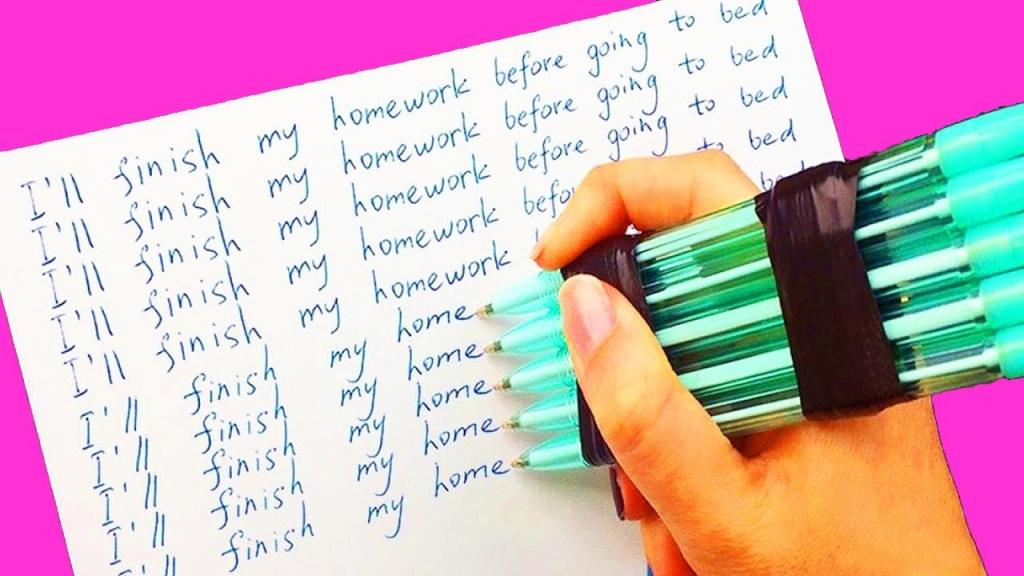 I'll finish my homework before going to bed
I'll finish my homework before going to bed
I'll finish my homework before going to bed
I'll finish my homework befo bed
I'll finish my homework
I'll finish my home
I'll finish my home
I'll finish my home
I'll finish my home
I'll finish my home